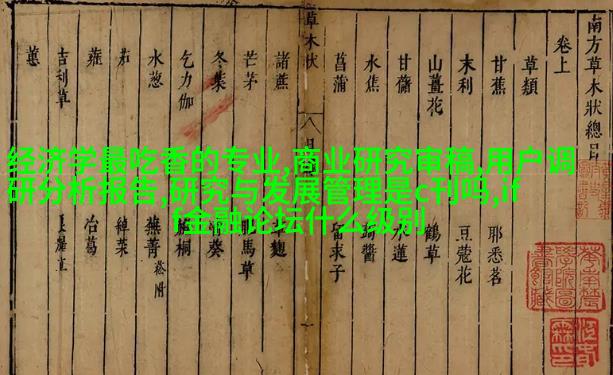 经济学最吃香的专业,商业研究审稿,用户调
研分析报告,研究与发展管理是c刊吗,if
f金融论坛什么级别
南方草木狀總目
卷上
草類
甘蕉 耶悉茗
末利 豆蔻花
山薑花 鶴草
甘藷 水蓮
水蕉 醬
菖蒲 留求子
草木狀
諸蔗 麴
芒茅 馬草
冬葉 葵
乞力伽 桐
水葱 蕪菁 菘附
茄 綽菜
蕹 冶葛
吉利草
蕙